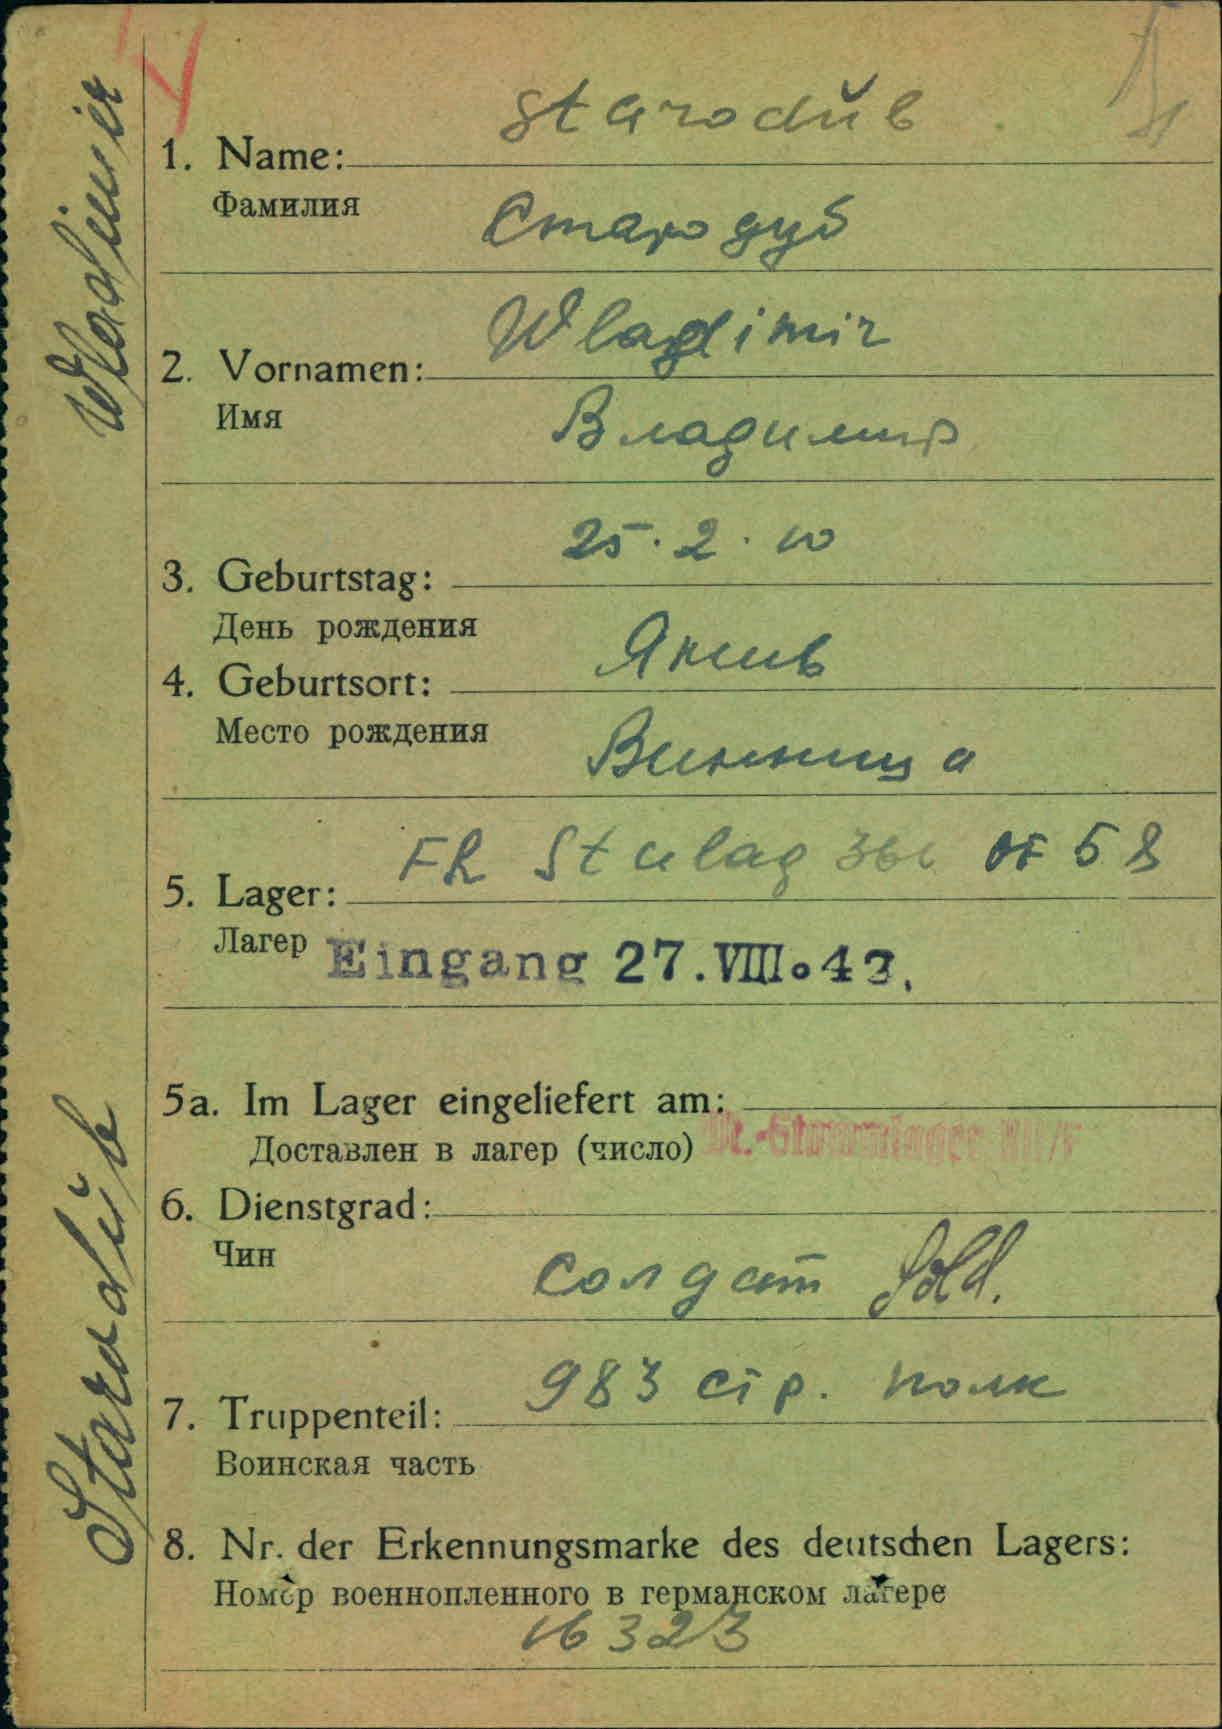 Starodŭb
1. Name:
Фамилия
Стародуб
Wladimir
2. Vornamen:
Имя
Владимир
25.2.10
3. Geburtstag:
День рождения
4. Geburtsort:
Место рождения
Винница
FR Stalag
5. Lager:
Лагер Eingang 27.VIII.43.
5a. Im Lager eingeliefert am:
Доставлен в лагер (число)
6. Dienstgrad:
Чин
солдат Sold.
983 стр. полк
7. Truppenteil:
Воинская часть
8. Nr. der Erkennungsmarke des deutschen Lagers:
Номер военнопленного в германском лагере
16323
Starodŭb Wladimir